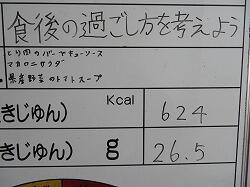 食後の過ごし方を考えよう
とり肉のバーベキューソース
マカロニサラダ
県産野菜のトマトスープ
きじゅん) Kcal 624
きじゅん) g 26.5